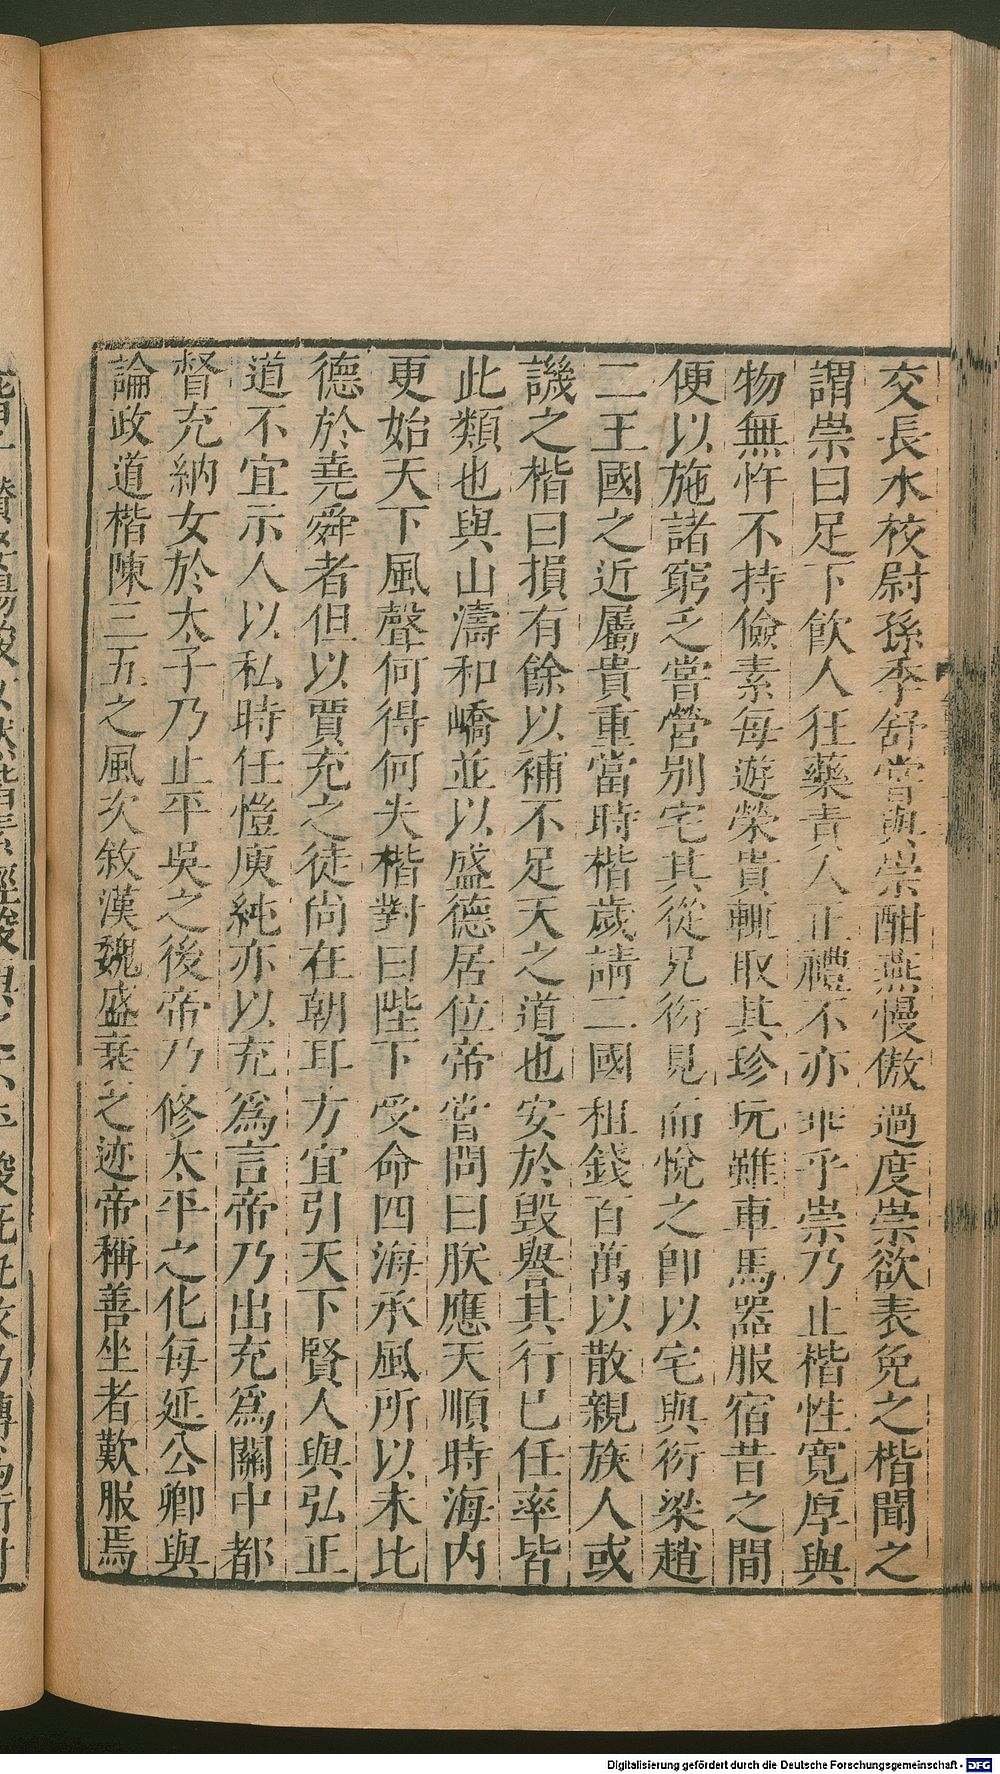 交長水校尉孫季舒嘗與崇酣燕慢傲過度崇欲表免之楷聞之
謂崇曰足下飲人狂藥責人正禮不亦乖乎崇乃止楷性寬厚與
物無忤不持儉素每遊榮貴輒取其珍玩雖車馬器服宿昔之間
便以施諸窮乏嘗營別宅其從兄衍見而悅之即以宅與衍梁趙
二王國之近屬貴重當時楷歲請二國租錢百萬以散親族人或
譏之楷曰損有餘以補不足天之道也安於毀譽其行已任率皆
此類也與山濤和嶠並以盛德居位帝嘗問曰朕應天順時海內
更始天下風聲何得何失楷對曰陛下受命四海承風所以未比
德於堯舜者但以賈充之徒尚在朝耳方宜引天下賢人與弘正
道不宜示人以私時任愷庾純亦以充為言帝乃出充為關中都
督充納女於太子乃止平吳之後帝乃修太平之化每延公卿與
論政道楷陳三五之風次敘漢魏盛衰之迹帝稱善坐者歎服焉
Digitalisierung gefördert durch die Deutsche Forschungsgemeinschaft - DFG